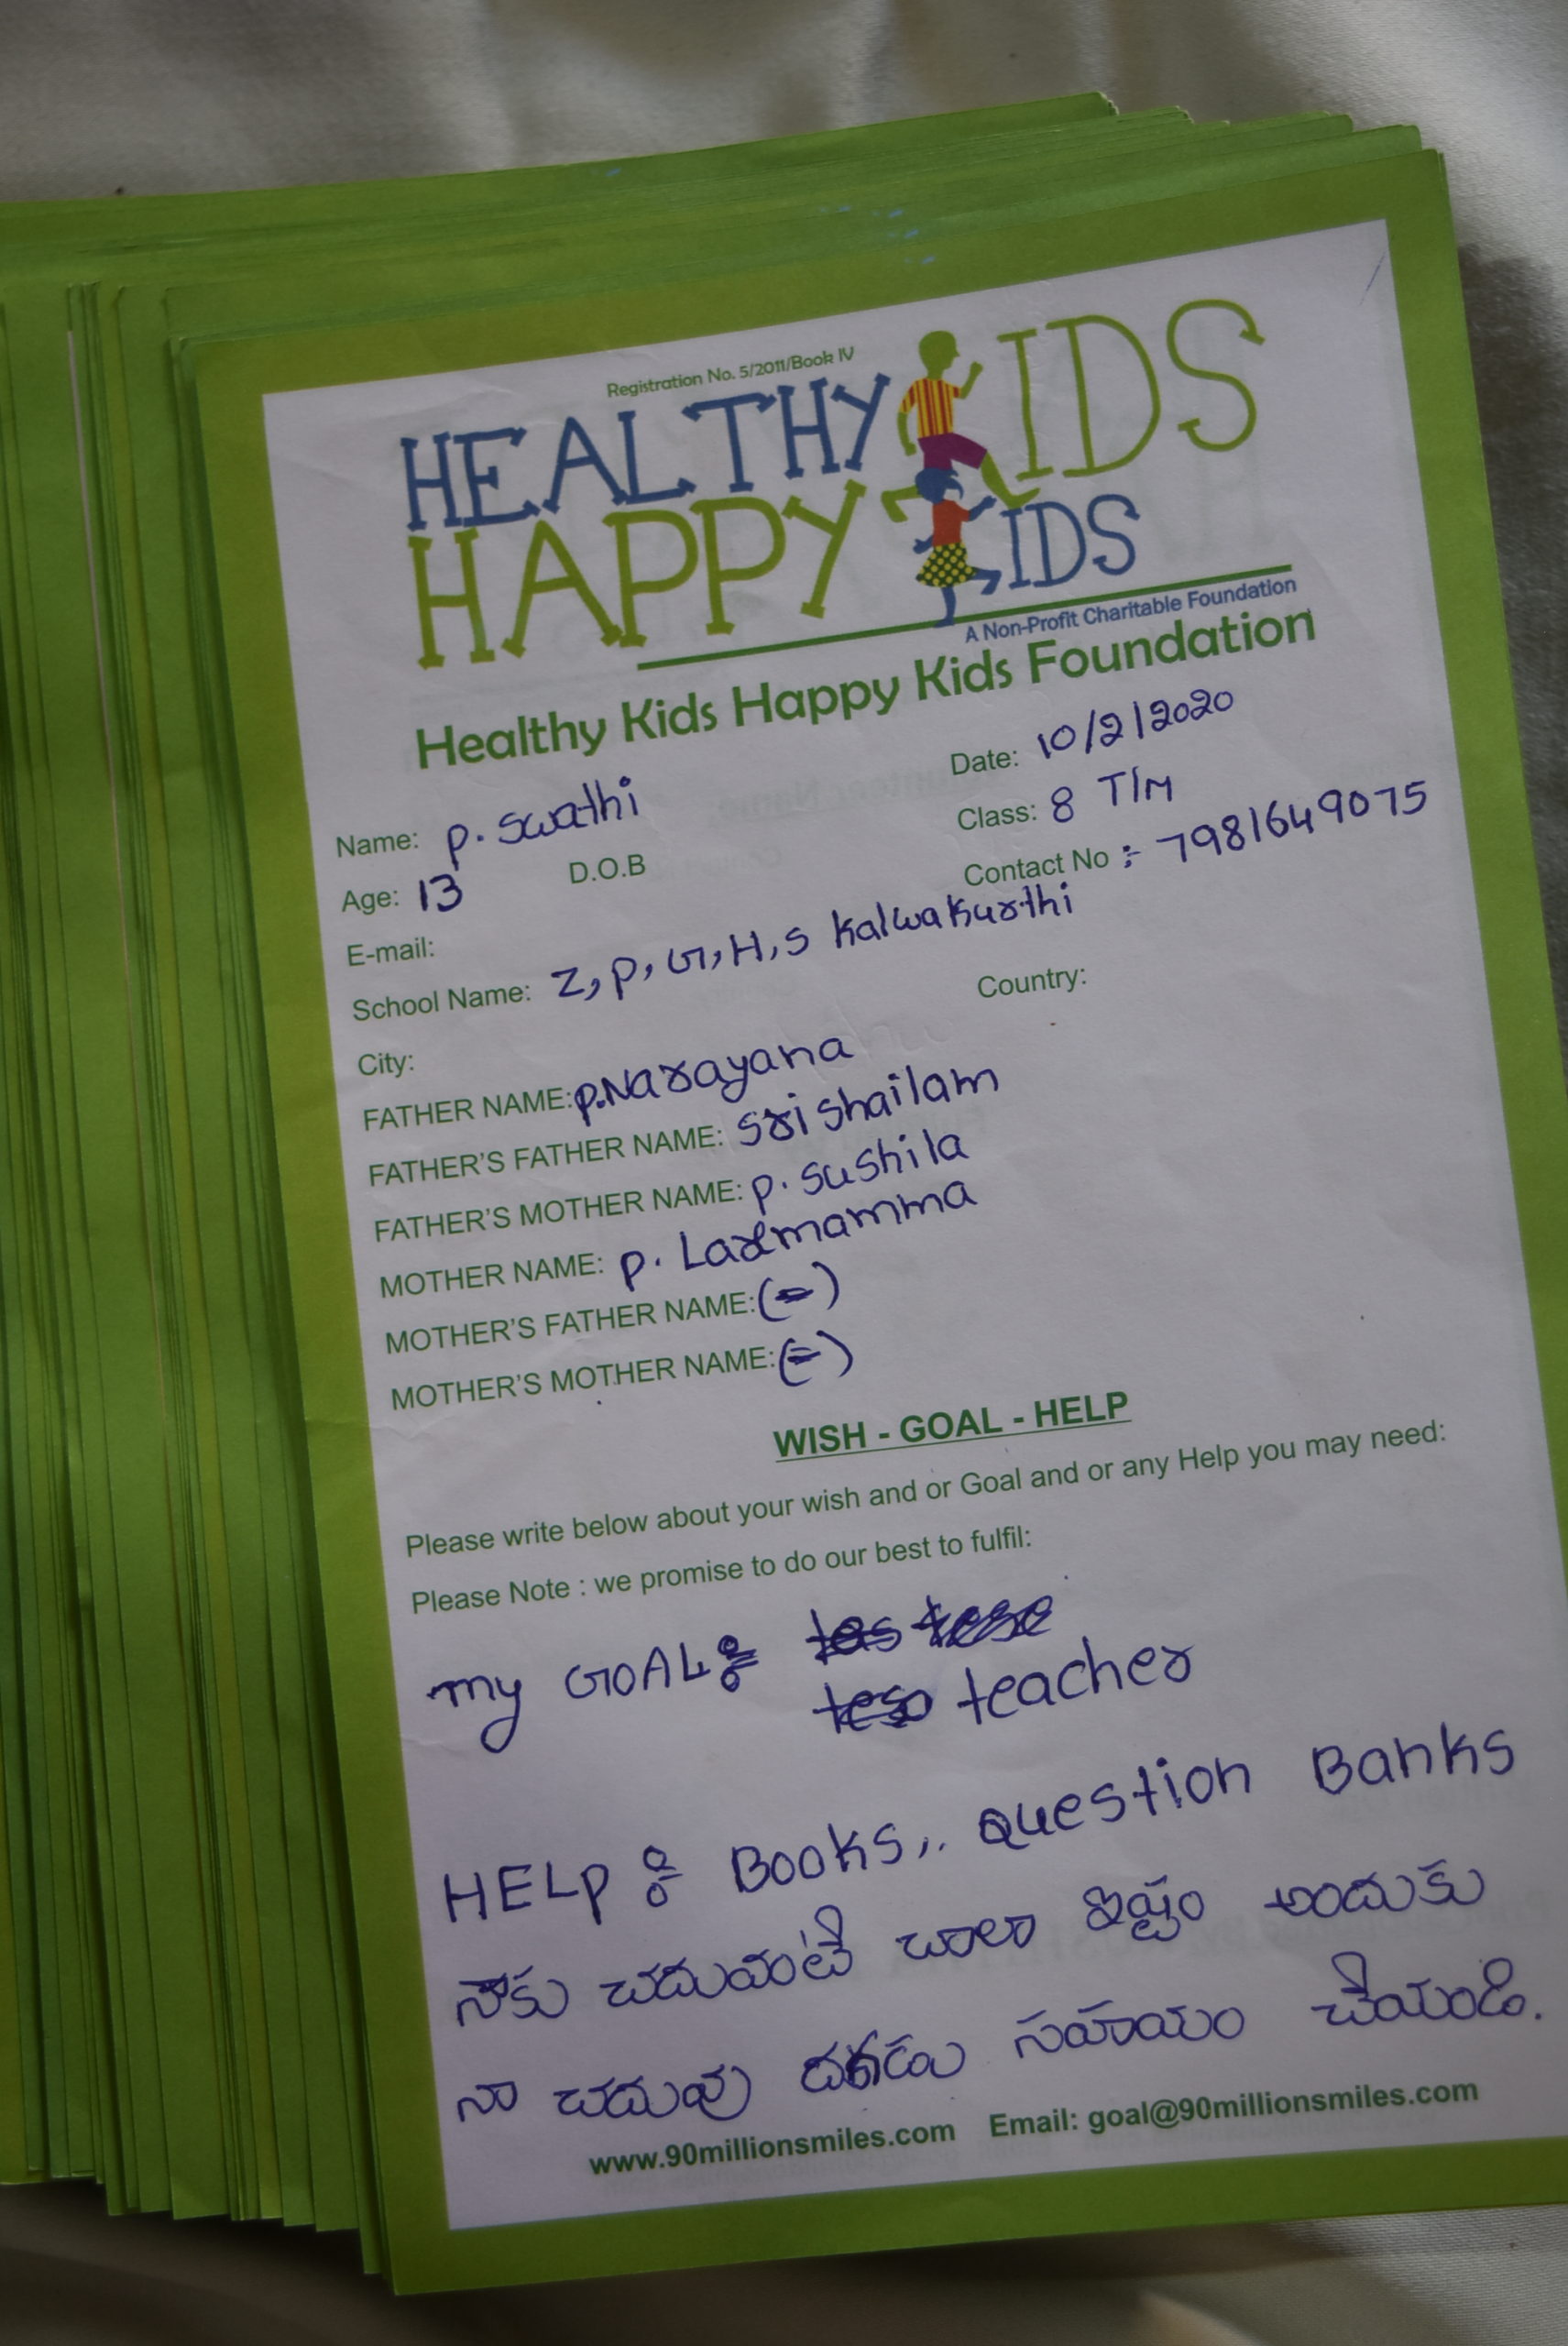 Registration No. 5/2011/Book IV
HEALTHY KIDS
HAPPY KIDS
A Non-Profit Charitable Foundation
Healthy Kids Happy Kids Foundation
Date: 10/2/2020
Name: p. swathi
Class: 8 T/M
Age: 13 D.O.B
Contact No :- 7981649075
E-mail:
School Name: Z, P, G, H, S Kalwakurthi
City: Country:
FATHER NAME: p. Narayana
FATHER'S FATHER NAME: Srishailam
FATHER'S MOTHER NAME: p. sushila
MOTHER NAME: p. Laxmamma
MOTHER'S FATHER NAME: (-)
MOTHER'S MOTHER NAME: (-)
WISH - GOAL - HELP
Please write below about your wish and or Goal and or any Help you may need:
Please Note : we promise to do our best to fulfil:
my GOAL :-
teacher
HELP :- Books,.. Question Banks
నాకు చదువంటే చాలా ఇష్టం అందుకు
నా చదువు సహయం చేయండి.
www.90millionsmiles.com Email: goal@90millionsmiles.com